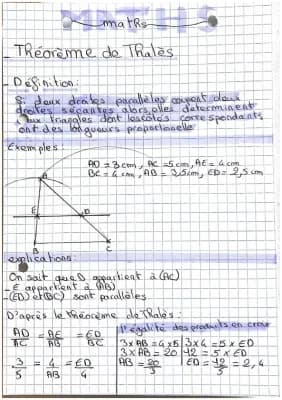 MATHS
maths
Théorème de Thalès
- Définition:
Si deux droites parallèles coupent deux
droites sécantes alors elles déterminent
deux triangles dont les côtés correspondants
ont des longueurs proportionnelle
Exemples:
AD = 3cm, AC = 5cm, AE = 4cm
BC = 4cm, AB = 3,5cm, ED = 2,5cm
A
E D
B C
explications:
On sait que D appartient à (AC)
- E appartient à (AB)
- (ED) et (BC) sont parallèles
D'après le théorème de Thalès:
AD/AC = AE/AB = ED/BC
3/5 = 4/AB = ED/4
l'égalité des produits en croix
3×AB = 4×5 3×4 = 5×ED
3×AB = 20 12 = 5×ED
AB = 20/3 ED = 12/5 = 2,4